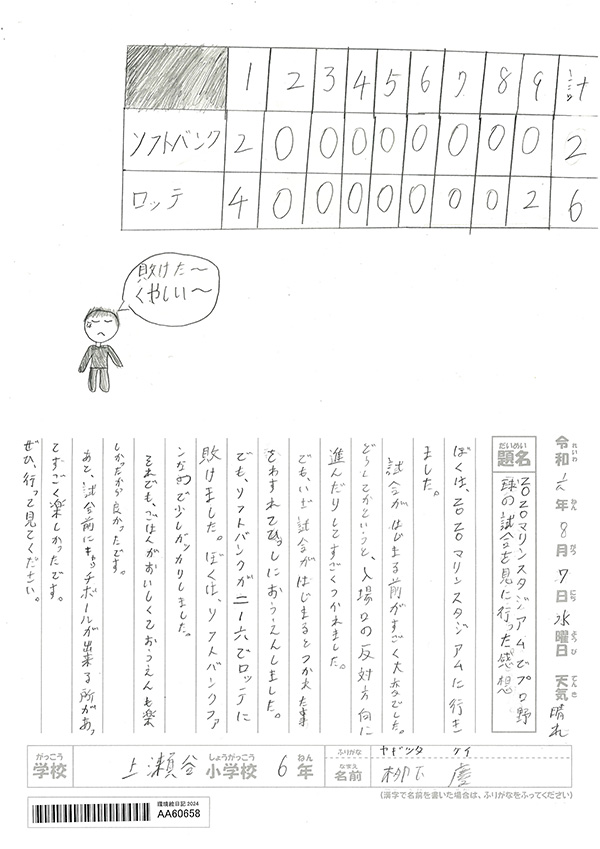 1 2 3 4 5 6 7 8 9 計
ソフトバンク 2 0 0 0 0 0 0 0 0 2
ロッテ 4 0 0 0 0 0 0 0 2 6
敗けた〜
くやしい〜
令和六年8月7日水曜日 天気晴れ
れいわ ねん がつ にち ようび てんき
だいめい
題名
ZOZOマリンスタジアムでプロ野
球の試合を見に行った感想
ぼくは、ZOZOマリンスタジアムに行き
ました。
試合がはじまる前がすごく大変でした。
どうしてかというと、入場口の反対方向に
進んだりしてすごくつかれました。
でも、いざ試合がはじまるとつかれた事
をわすれてひっしにおうえんしました。
でも、ソフトバンクが二ー六でロッテに
敗けました。ぼくは、ソフトバンクファ
ンなので少しガッカリしました。
それでも、ごはんがおいしくておうえんも楽
しかったから良かったです。
あと、試合前にキャッチボールが出来る所があっ
てすごく楽しかったです。
ぜひ、行って見てください。
がっこう しょうがっこう ねん
学校 上瀬谷小学校 6年
ふりがな ヤギシタ ケイ
なまえ
名前 柳下 慶
(漢字で名前を書いた場合は、ふりがなをふってください)
環境絵日記 2024
AA60658